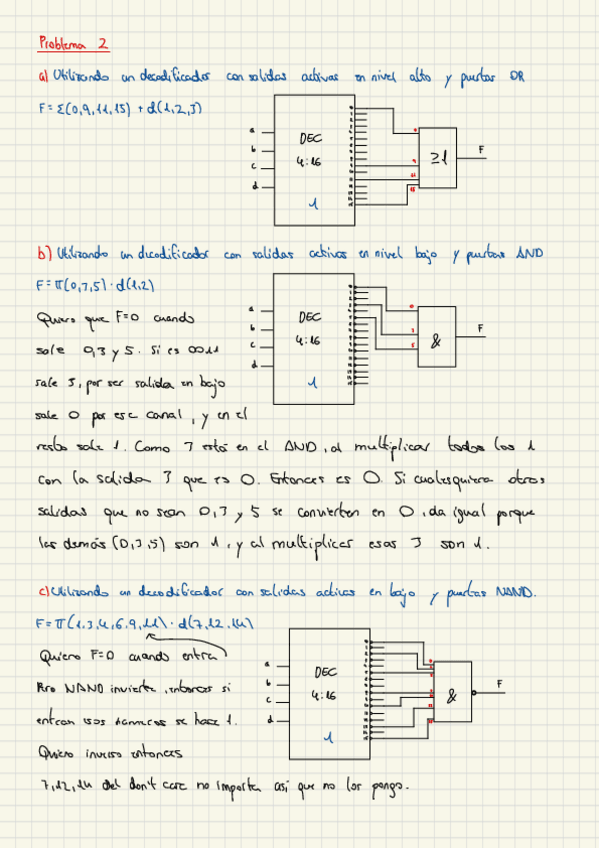 Problema 2
a) Utilizando un decodificador con salidas activas en nivel alto y puertas OR
F = Σ(0,9,11,15) + d(1,2,3)
a
b
c
d
DEC
4:16
1
≥1
F
b) Utilizando un decodificador con salidas activas en nivel bajo y puertas AND
F = π(0,3,5) · d(1,2)
Quiero que F=0 cuando
sale 0,3 y 5. Si es 0011
sale 3, por ser salida en bajo
sale 0 por ese canal, y en el
resto sale 1. Como 3 está en el AND, al multiplicar todos los 1
con la salida 3 que es 0. Entonces es 0. Si cualesquiera otras
salidas que no sean 0,3 y 5 se convierten en 0, da igual porque
las demás (0,3,5) son 1, y al multiplicar esas 3 son 1.
a
b
c
d
DEC
4:16
1
0
3
5
&
F
c) Utilizando un decodificador con salidas activas en bajo y puertas NAND.
F = π(1,3,4,6,9,11) · d(7,12,14)
Quiero F=0 cuando entra
Pero NAND invierte, entonces si
entran esos números se hace 1.
Quiero inverso entonces
7,12,14 del don't care no importa así que no los pongo.
a
b
c
d
DEC
4:16
1
&
F